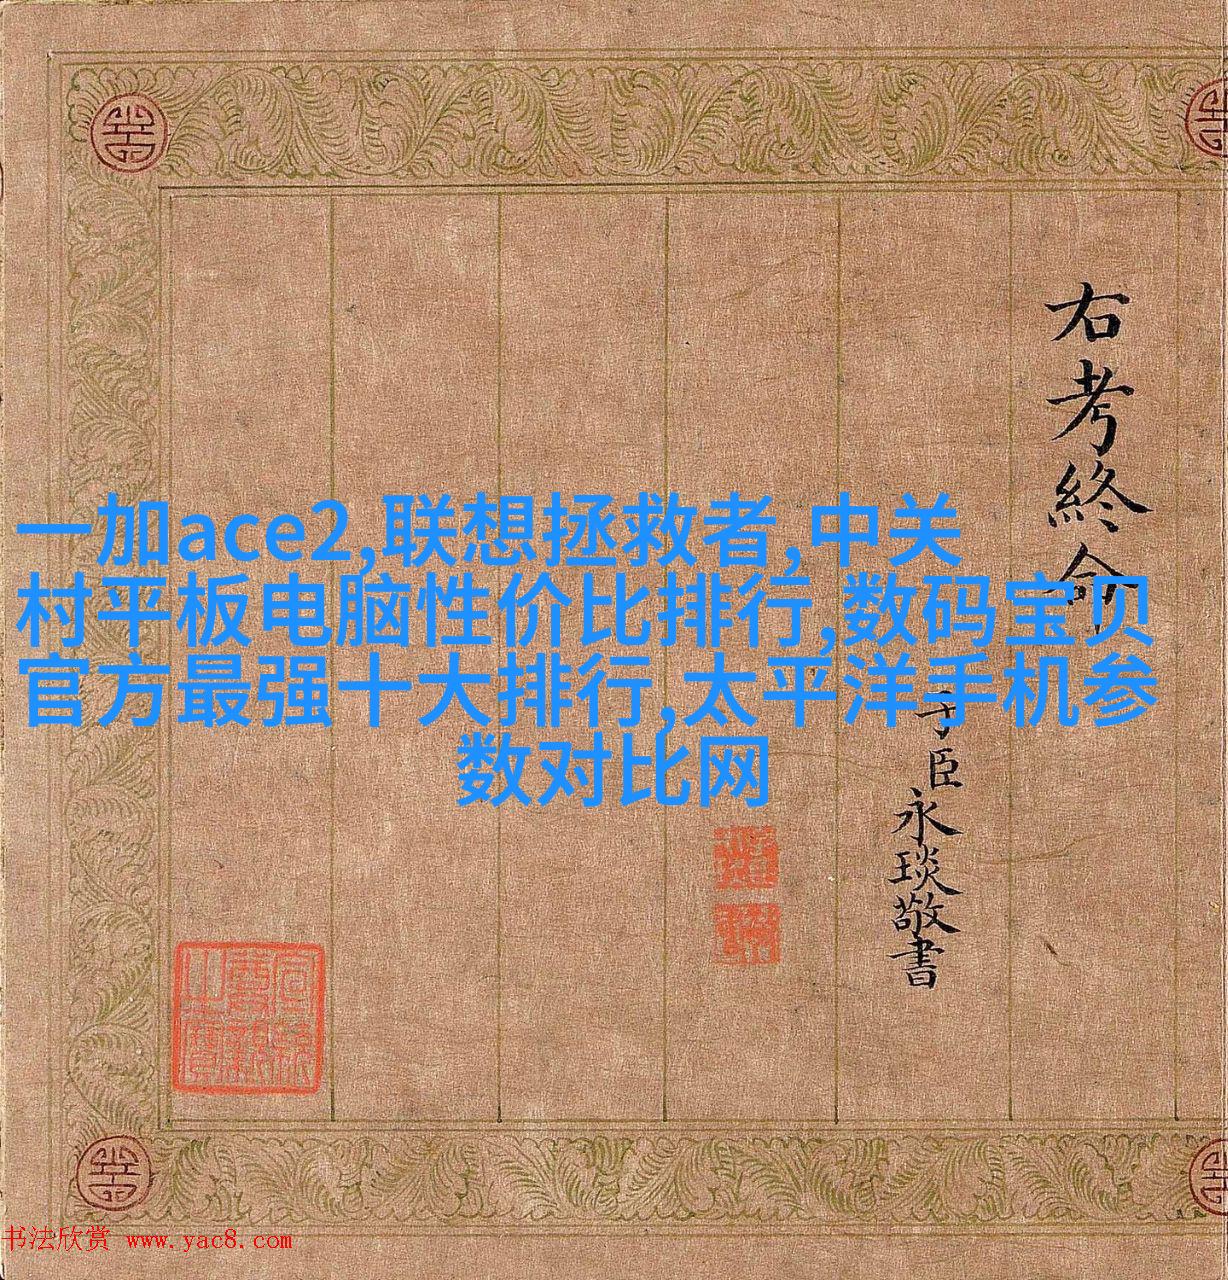 右考終命
子臣
永琰敬書
一加ace2,联想拯救者,中关
村平板电脑性价比排行,数码宝贝
官方最强十大排行,太平洋手机参
数对比网
书法欣赏 www.yac8.com